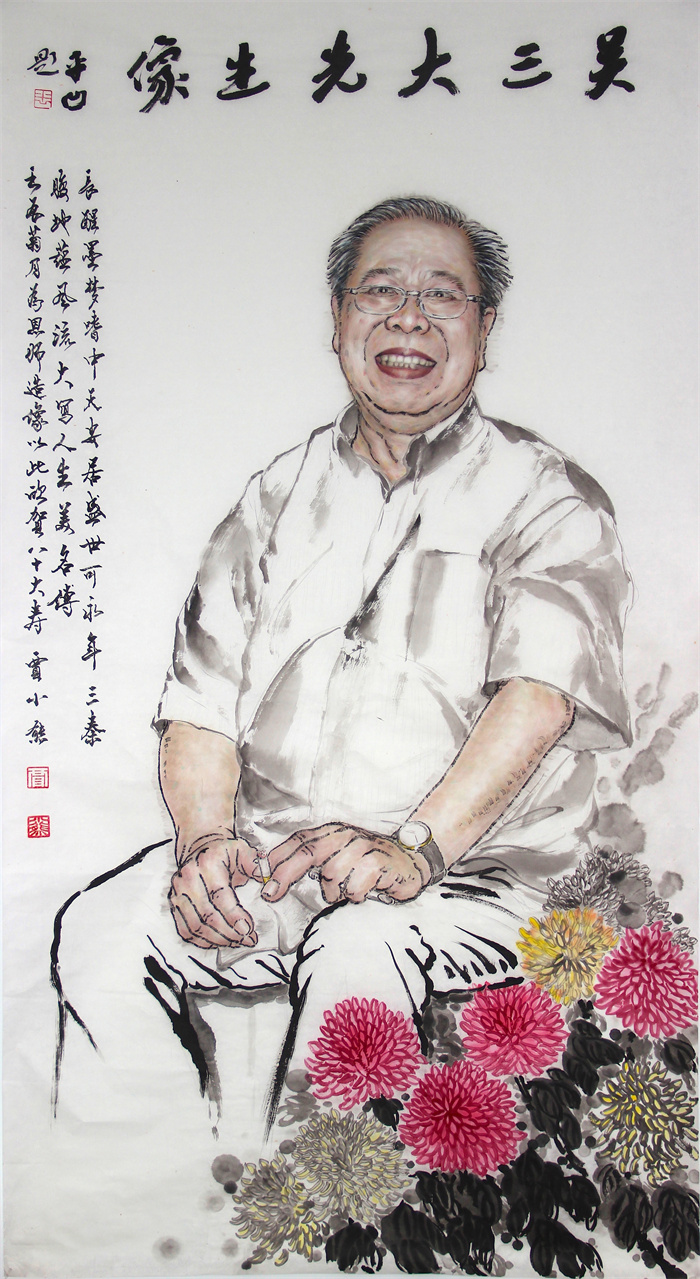 吴三大先生像
平凹
题
長醒墨梦嗜中天安居盛世可永年三秦
腹地蕴风流大写人生美名传
壬辰菊月为恩师造像以此欣贺八十大寿 贾小